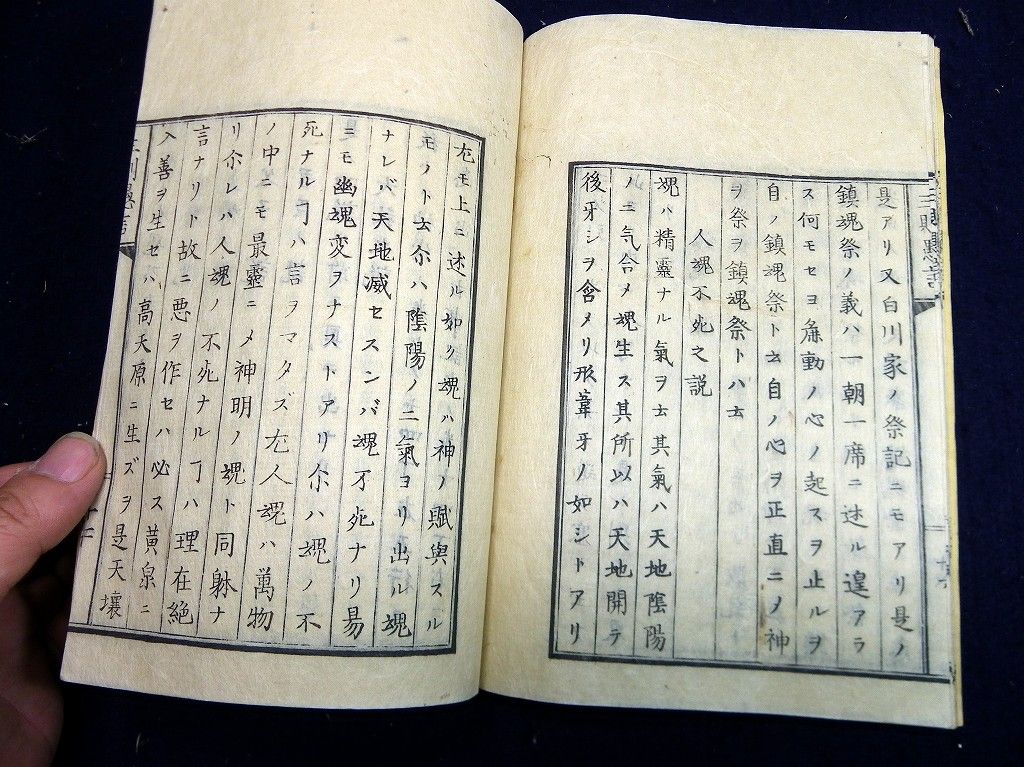 是アリ又白川家ノ祭記ニモアリ是ノ
鎮魂祭ノ義ハ一朝一席ニ述ル遑アラ
ス何モセヨ麁動ノ心ノ起スヲ止ルヲ
自ノ鎮魂祭ト云自ノ心ヲ正直ニメ神
ヲ祭ヲ鎮魂祭トハ云
人魂不死之説
魂ハ精靈ナル氣ヲ云其氣ハ天地陰陽
ノ二气合メ魂生ス其所以ハ天地開テ
後牙シヲ含メリ形葦牙ノ如シトアリ
尤モ上ニ述ル如ク魂ハ神ノ賦與スル
モノト云尒ハ陰陽ノ二氣ヨリ出ル魂
ナレバ天地滅セスンバ魂不死ナリ易
ニモ幽魂変ヲナストアリ尒ハ魂ノ不
死ナルヿハ言ヲマタズ尤人魂ハ萬物
ノ中ニモ最靈ニメ神明ノ魂ト同躰ナ
リ尒レハ人魂ノ不死ナルヿハ理在絶
言ナリト故ニ悪ヲ作セハ必ス黄泉ニ
入善ヲ生セハ高天原ニ生ズヲ是天壤